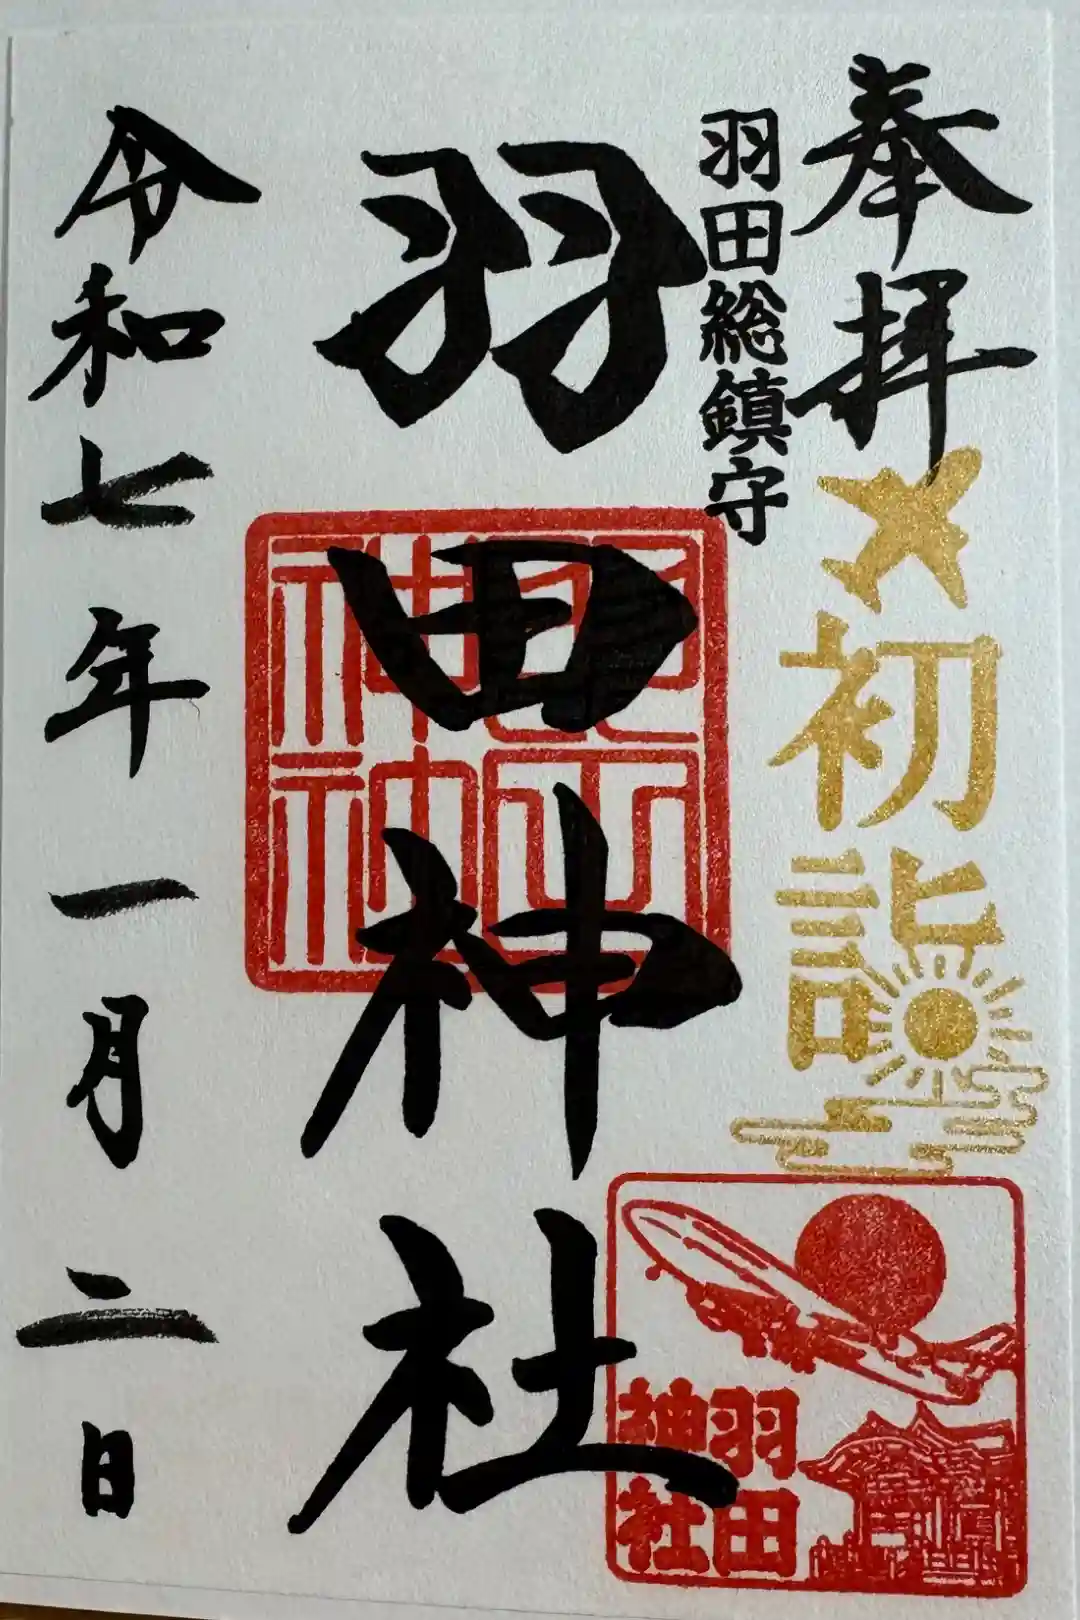 奉拝
羽田総鎮守
初詣
羽田神社
羽田
神社
令和七年一月二日